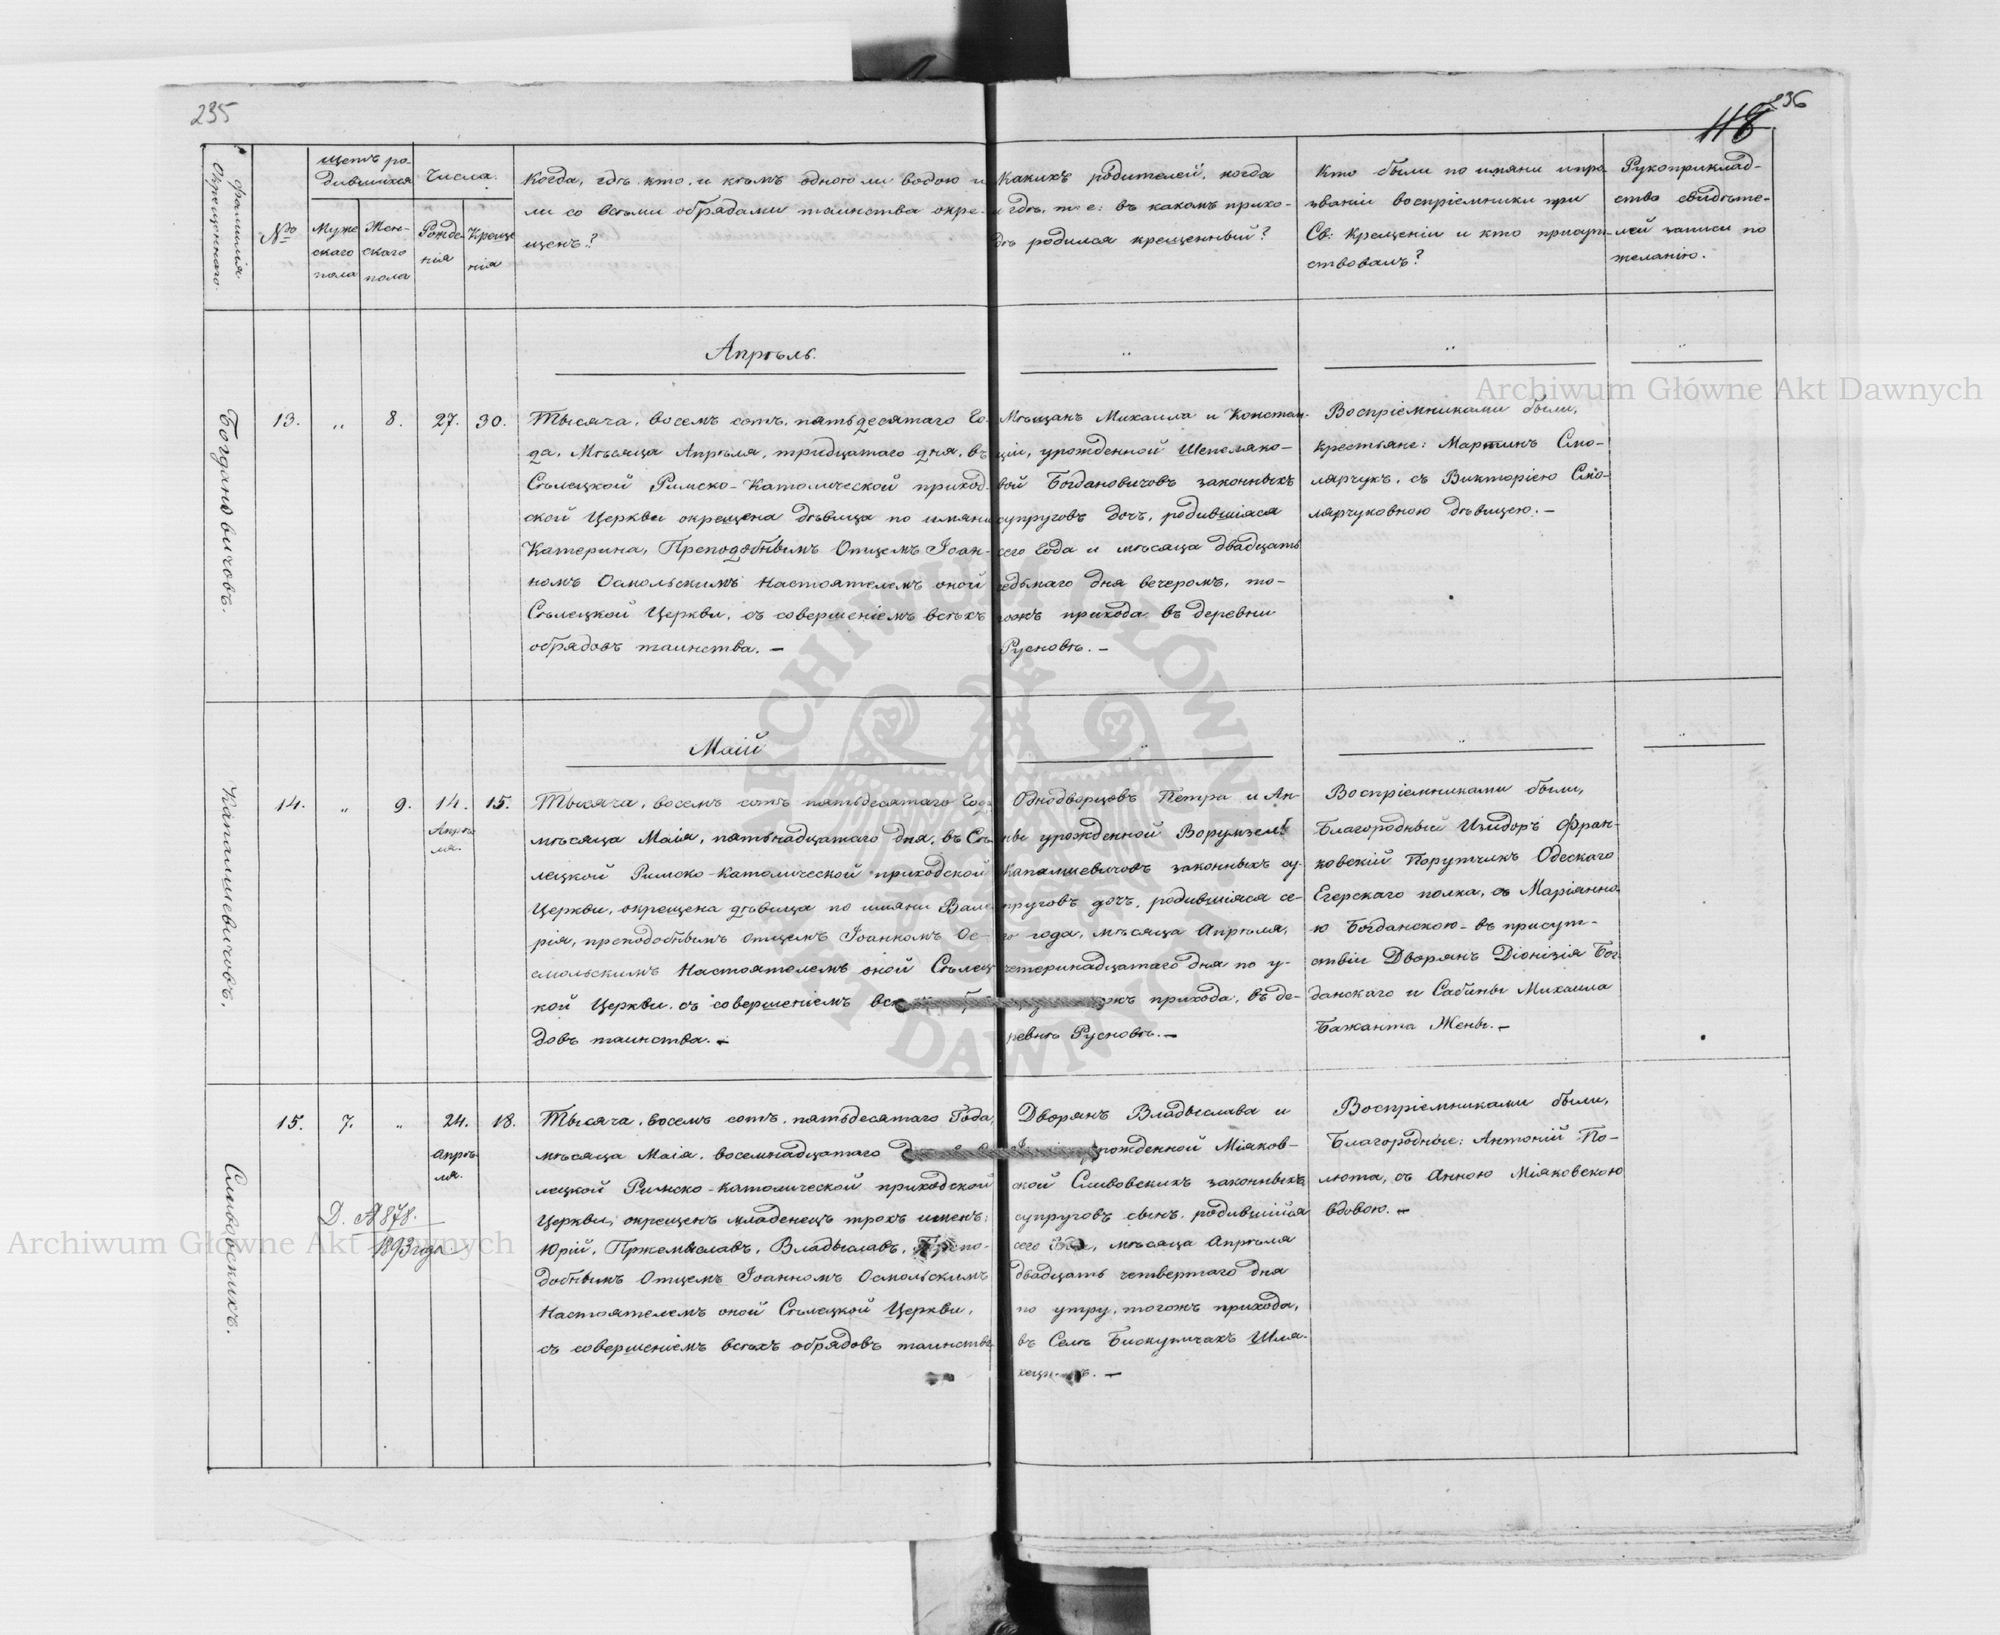 235
236
118
Фамилія Окрещеннаго.
№
Щетъ ро-
дившихся
Муже
скаго
пола
Жен-
скаго
пола
Числа.
Рожде-
нія
Креще
нія
Когда, гдѣ, кто, и кѣмъ одною ли водою и
ли со всѣми обрядами таинства окре-
щенъ?
Какихъ родителей, когда
и гдѣ, т: е: въ какомъ прихо-
дѣ родился крещенный?
Кто были по имяни и про
званіи воспріемники при
Св: Крещеніи и кто присут-
ствовалъ?
Рукоприклад-
ство свидѣте-
лей записи по
желанію.
Апрѣль.
Богдановичовъ.
13.
8.
27.
30.
Тысяча, восемъ сотъ, пятьдесятаго Го-
да, Мѣсяца Апрѣля, тридцатаго дня, въ
Сѣлецкой Римско-Католической приход
ской Церкви окрещена дѣвица по имяни
Катерина, Преподобнымъ Отцемъ Іоан-
номъ Осмольскимъ Настоятелемъ оной
Сѣлецкой Церкви, съ совершеніемъ всѣхъ
обрядовъ таинства. —
Мѣщанъ Михаила и Констан-
ціи, урожденной Шепеляко-
вой Богдановичовъ законныхъ
супруговъ дочь, родившіяся
сего Года и мѣсяца двадцать
седьмаго дня вечеромъ, то-
гожъ прихода въ деревни
Русновѣ. —
Воспріемниками были,
крестьяне: Мартинъ Смо-
лярчукъ, съ Викторіею Смо-
лярчуковною дѣвицею. —
Маій
Капалишевичовъ.
14.
9.
14.
Апрѣ
ля.
15.
Тысяча, восемъ сотъ пятьдесятаго Года
мѣсяца Маія, пятьнадцатаго дня, въ Сѣ-
лецкой Римско-Католической приходской
Церкви, окрещена дѣвица по имяни Вале
рія, преподобнымъ Отцемъ Іоанномъ Ос-
смольскимъ Настоятелемъ оной Сѣлец
кой Церкви, съ совершеніемъ
довъ таинства. —
Однодворцовъ Петра и Ан-
ны урожденной
Капалишевичовъ законныхъ су-
пруговъ дочь, родившіяся се-
го года, мѣсяца Апрѣля,
четеринадцатаго дня по у-
прихода, въ де-
ревнѣ Русновѣ. —
Воспріемниками были,
Благородный Изидоръ Фран-
ковскій Порутчикъ Одескаго
Егерскаго полка, съ Маріанно-
ю Богданскою - въ присут-
ствіи Дворянъ Діонізія Бог
данскаго и Сабины Михаила
Бажанта Жены. —
Сливовскихъ.
15.
7.
24.
Апрѣ
ля.
18.
Д. № 878.
1893 года.
Тысяча, восемъ сотъ, пятьдесятаго Года,
мѣсяца Маія, восемнадцатаго
лецкой Римско-Католической приходской
Церкви, окрещенъ младенецъ трохъ именъ:
Юрій, Пржемыславъ, Владыславъ, Препо-
добнымъ Отцемъ Іоанномъ Осмольскимъ
Настоятелемъ оной Сѣлецкой Церкви,
съ совершеніемъ всѣхъ обрядовъ таинства
Дворянъ Владыслава и
урожденной Міяков-
ской Сливовскихъ законныхъ
супруговъ сынъ, родившійся
сего Года, мѣсяца Апрѣля
двадцать четвертаго дня
по утру, тогожъ прихода,
въ Селѣ Бискупичахъ Шля-
Воспріемниками были,
Благородные: Антоній По-
люта, съ Анною Міяковскою
вдовою. —
Archiwum Główne Akt Dawnych
Archiwum Główne Akt Dawnych
ARCHIWUM GŁÓWNE AKT DAWNYCH